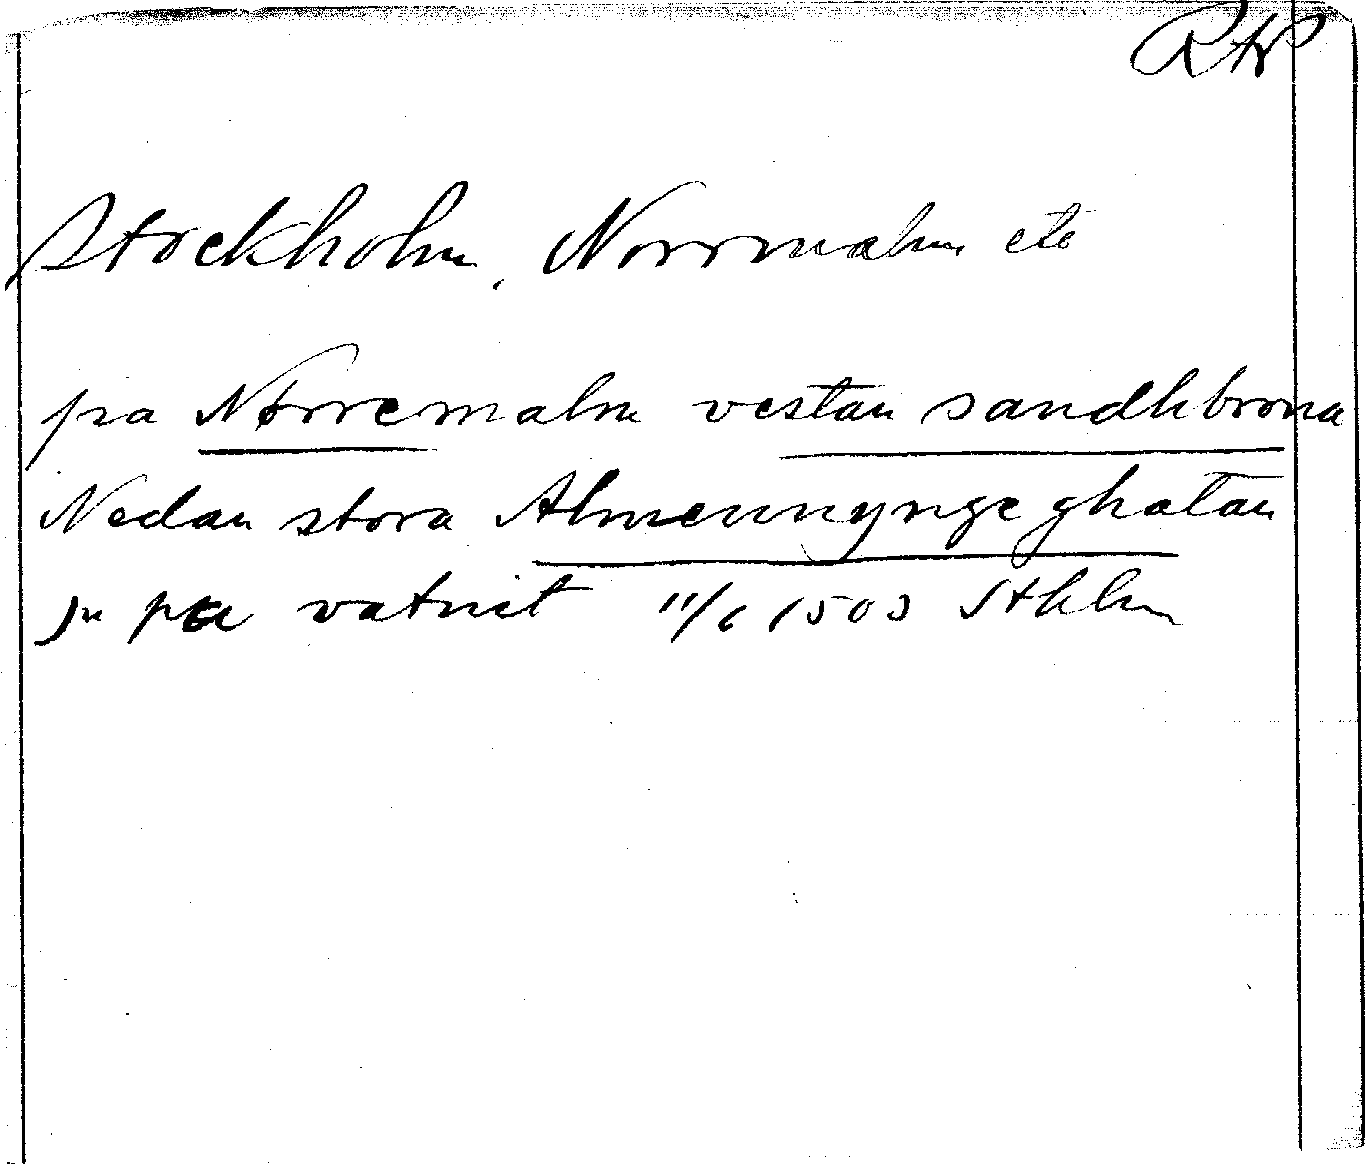 RAP
Stockholm, Norrmalm etc
pa Norremalm vestan sandhbrona
Nedan stora Almennynge ghatan
Jn pa vatnet 11/6 1503 Sthlm